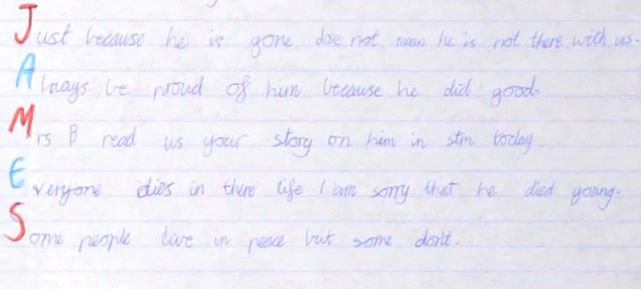 Just because he is gone dose not mean he is not there with us.
Always be proud of him because he did good.
Mrs B read us your story on him in stem today.
Everyone dies in there life I am sorry that he died young.
Some people live in peace but some don't.